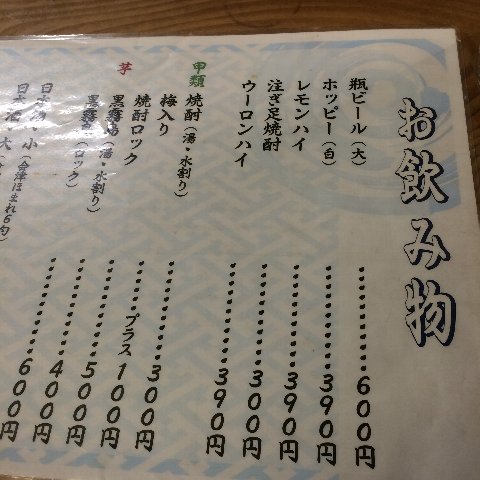 お飲み物
瓶ビール(大)・・・・・・・・・・600円
ホッピー(白)・・・・・・・・・・390円
レモンハイ・・・・・・・・・・390円
注ぎ足焼酎・・・・・・・・・・300円
ウーロンハイ・・・・・・・・・・390円
甲類 焼酎(湯・水割り)・・・・・・・・300円
梅入り・・・・プラス100円
焼酎ロック・・・・・・・・500円
芋 黒霧島(湯・水割り)・・・・・・・・400円
黒霧島(ロック)・・・・・・・・600円
日本酒・小(会津ほまれ6勺)
日本酒・大(